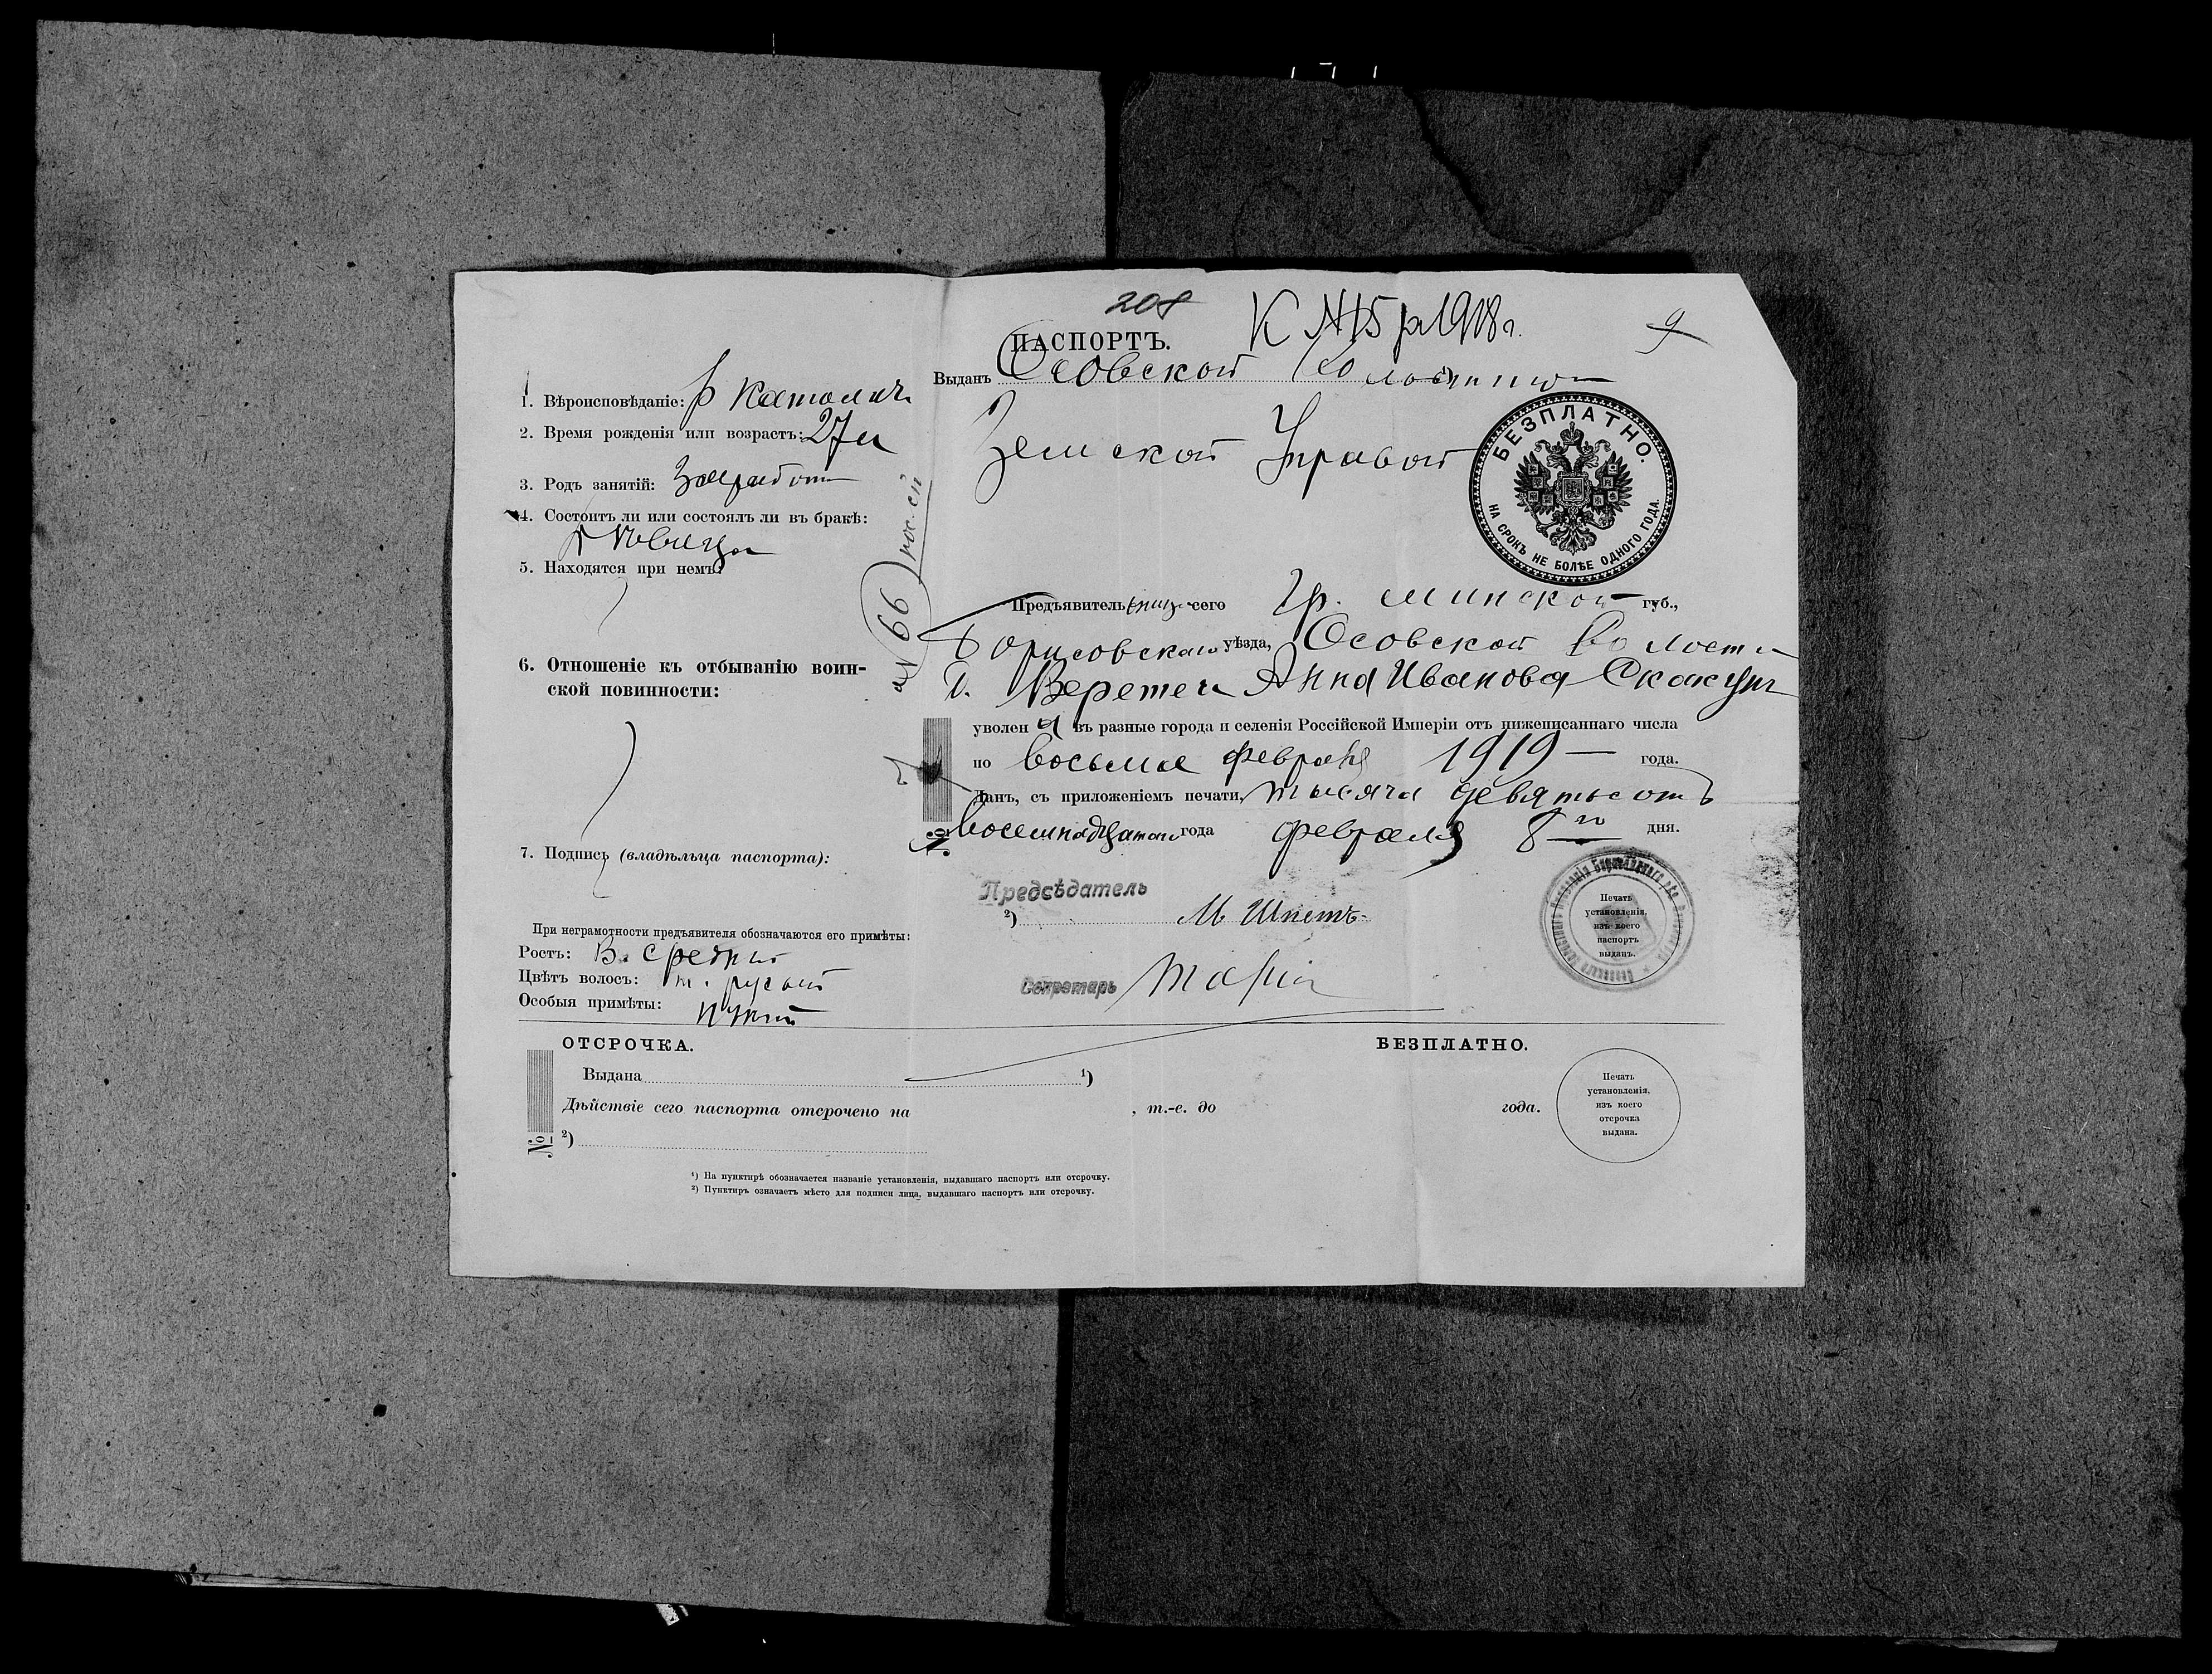 208
К №15 р 1918 г.
9
ПАСПОРТЪ.
Выданъ Осовской Волостной
Земской Управой
БЕЗПЛАТНО.
НА СРОКЪ НЕ БОЛѢЕ ОДНОГО ГОДА.
1. Вѣроисповѣданіе: р католич
2. Время рожденія или возрастъ: 27 л
3. Родъ занятій: Заработ
4. Состоитъ ли или состоялъ ли въ бракѣ:
дѣвица
5. Находятся при немъ:
6. Отношеніе къ отбыванію воин-
ской повинности:
7. Подпись (владѣльца паспорта):
При неграмотности предъявителя обозначаются его примѣты:
Ростъ: В. средній
Цвѣтъ волосъ: т. русый
Особыя примѣты:
№ 66
Предъявительница сего Гр. Минской губ.,
Борисовскаго уѣзда, Осовской Волости
д. Веретеи Анна Иванова Скакунъ
уволена въ разные города и селенія Россійской Имперіи отъ нижеписаннаго числа
по восьмое февраля 1919 года.
Данъ, съ приложеніемъ печати, тысяча девятьсотъ
восемнадцатаго года февраля 8го дня.
№
Предсѣдатель
²) М Шпетъ
Секретарь
Печать
установленія,
изъ коего
паспортъ
выданъ.
ОТСРОЧКА.
БЕЗПЛАТНО.
Выдана ¹)
Дѣйствіе сего паспорта отсрочено на , т.-е. до года.
№ ²)
Печать
установленія,
изъ коего
отсрочка
выдана.
¹) На пунктирѣ обозначается названіе установленія, выдавшаго паспортъ или отсрочку.
²) Пунктиръ означаетъ мѣсто для подписи лица, выдавшаго паспортъ или отсрочку.